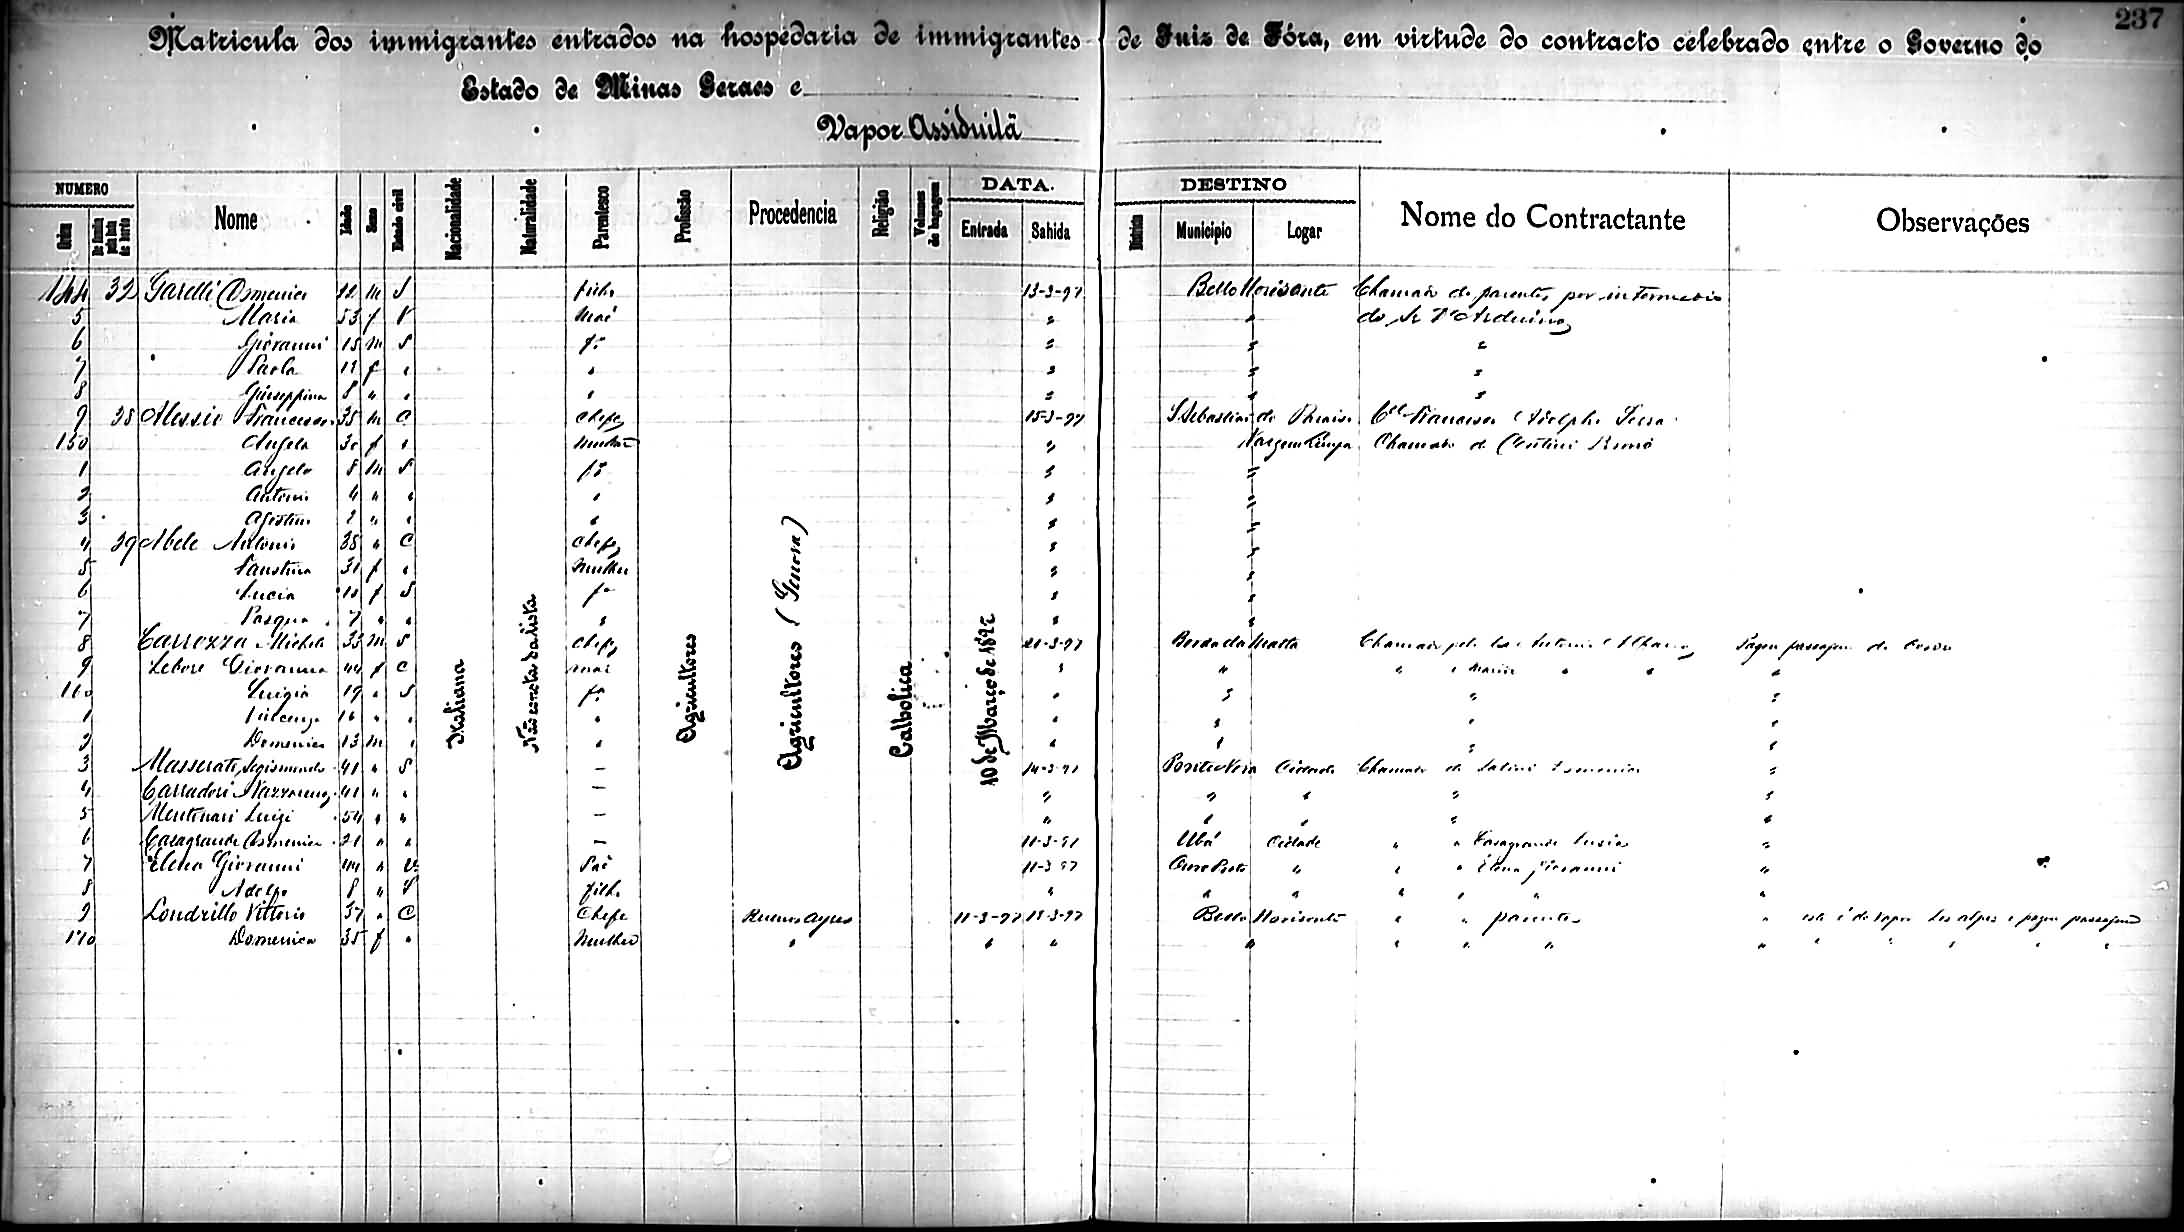 237
Matricula dos immigrantes entrados na hospedaria de immigrantes de Juiz de Fóra, em virtude do contracto celebrado entre o Governo do
Estado de Minas Geraes e
Vapor Assiduitä
NUMERO Nome Idade Sexo Estado civil Nacionalidade Naturalidade Parentesco Profissão Procedencia Religião Volumes de bagagem DATA. DESTINO Nome do Contractante Observações
Ordem Entrada Sahida Districto Municipio Logar
Italiana
Não consta da lista
Agricultores
Agricultores (Genova)
Catholica
10 de Março de 1897
144 32 Garelli Domenico 22 m S filho 13-3-97 Bello Horisonte Chamado de parentes por intermedio
5 Maria 53 f V Mai " " do Sr
6 Giovanni 15 m S fo " " "
7 Paola 12 f " " " " "
8 Giuseppina 8 " " " " " "
9 38 Alessio Francesco 35 m C Chefe 15-3-97 S. Sebastião do Paraiso Cel Francisco Adolpho
150 Angela 30 f " mulher " Vargem Limpa Chamado de
1 Angelo 8 m S fo " "
2 Antonio 4 " " " " "
3 Agostino 2 " " " " "
4 39 Abele Antonio 38 " C Chefe " "
5 Faustina 31 f " Mulher " "
6 Lucia 10 f S fa " "
7 Pasqua 7 " " " " "
8 Carrozza Michele 35 m S Chefe 21-3-97 Borda da Matta Chamado pelo Antonio Pagou passagem de
9 Lebore Giovanna 44 f C mai " " " " Maria " " "
160 Luigia 19 " S fa " " " "
1 Vincenza 16 " " " " " " "
2 Domenico 13 m " " " " " "
3 Masserati Segismondo 41 " S — 14-3-97 Ponte Nova Cidade Chamado de "
4 Carradori Nazzareno 41 " " — " " " " "
5 Montenari Luigi 54 " " — " " " "
6 Casagrande Domenico 21 " " — 11-3-97 Ubá Cidade " " Casagrande "
7 Elena Giovanni 44 " V. Pai 11-3-97 Ouro Preto " " " Elena Giovanni "
8 Adolfo 8 " S filho " " " " " " "
9 Londrillo Vittorio 37 " C Chefe Buenos Ayres 11-3-97 15-3-97 Bello Horisonte " " parentes " este é do vapor Les Alpes e pagou passagem
170 Domenica 35 f " Mulher " " " " " " " " " " " " "